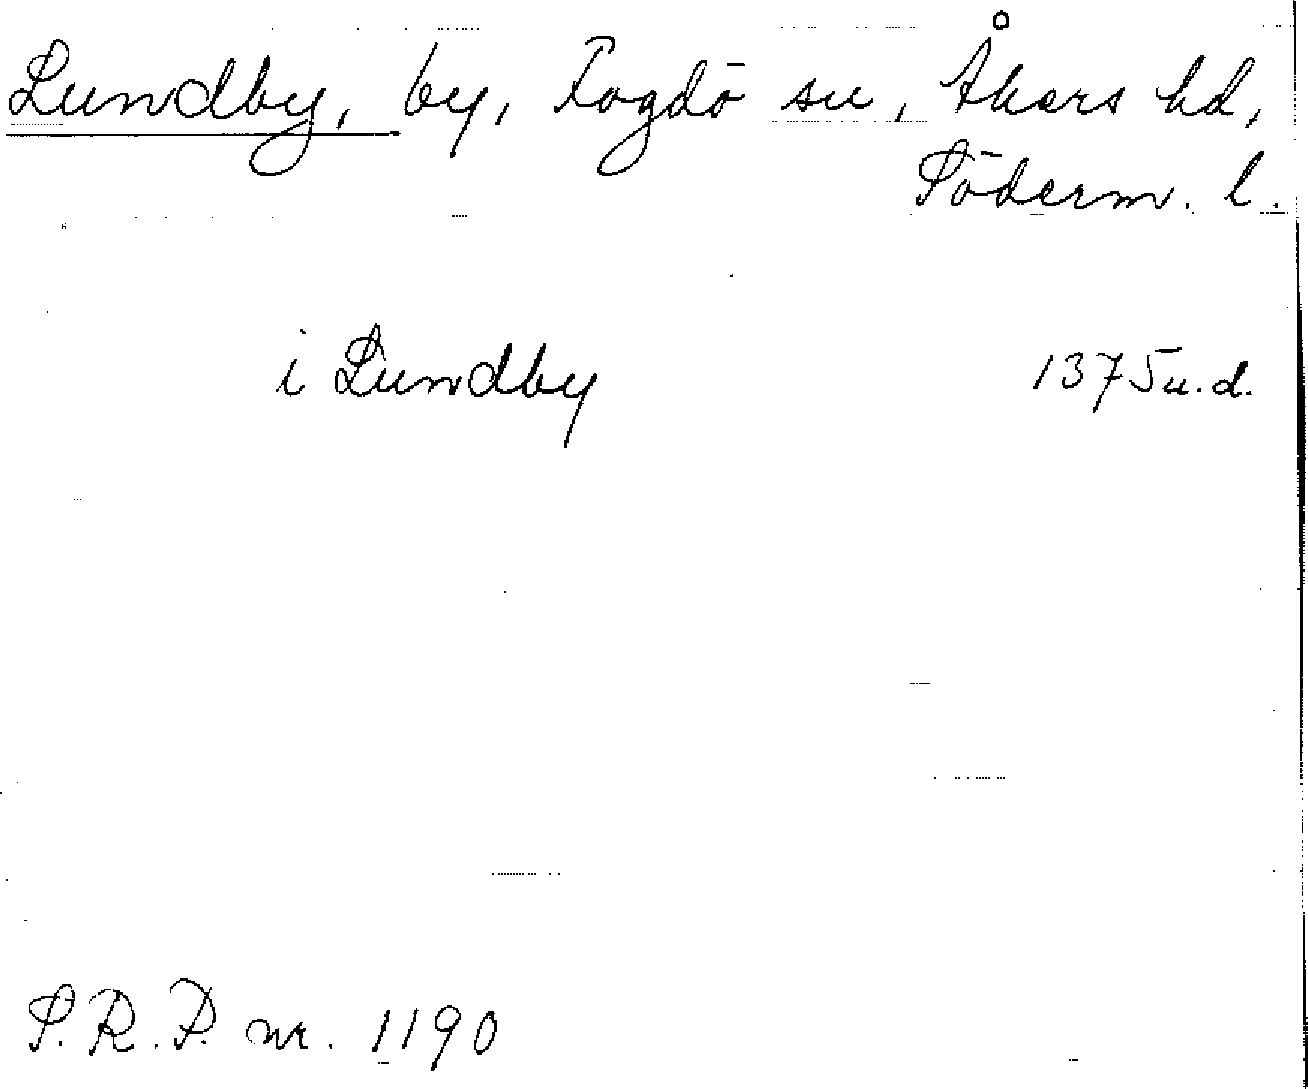 Lundby, by, Fogdö sn, Åkers hd,
Söderm. l.
i Lundby 1375 u.d.
S.R.P. nr. 1190